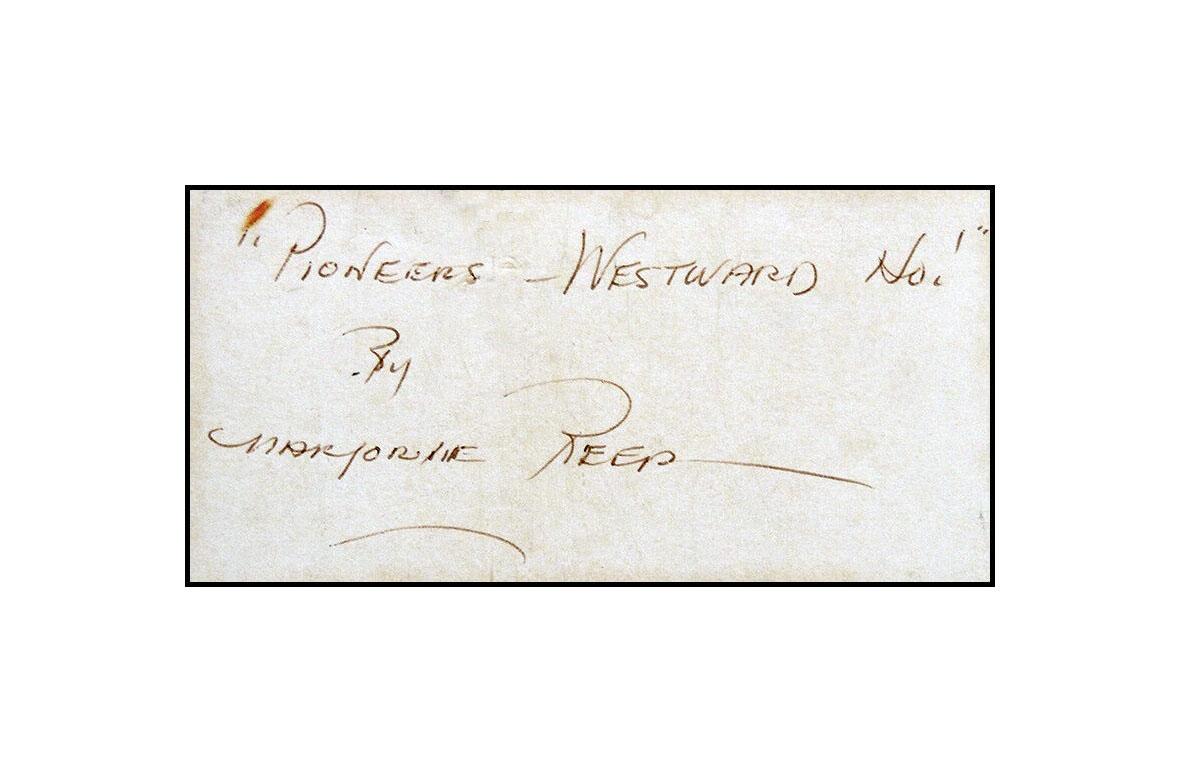 "PIONEERS - WESTWARD HO!"
By
MARJORIE REED